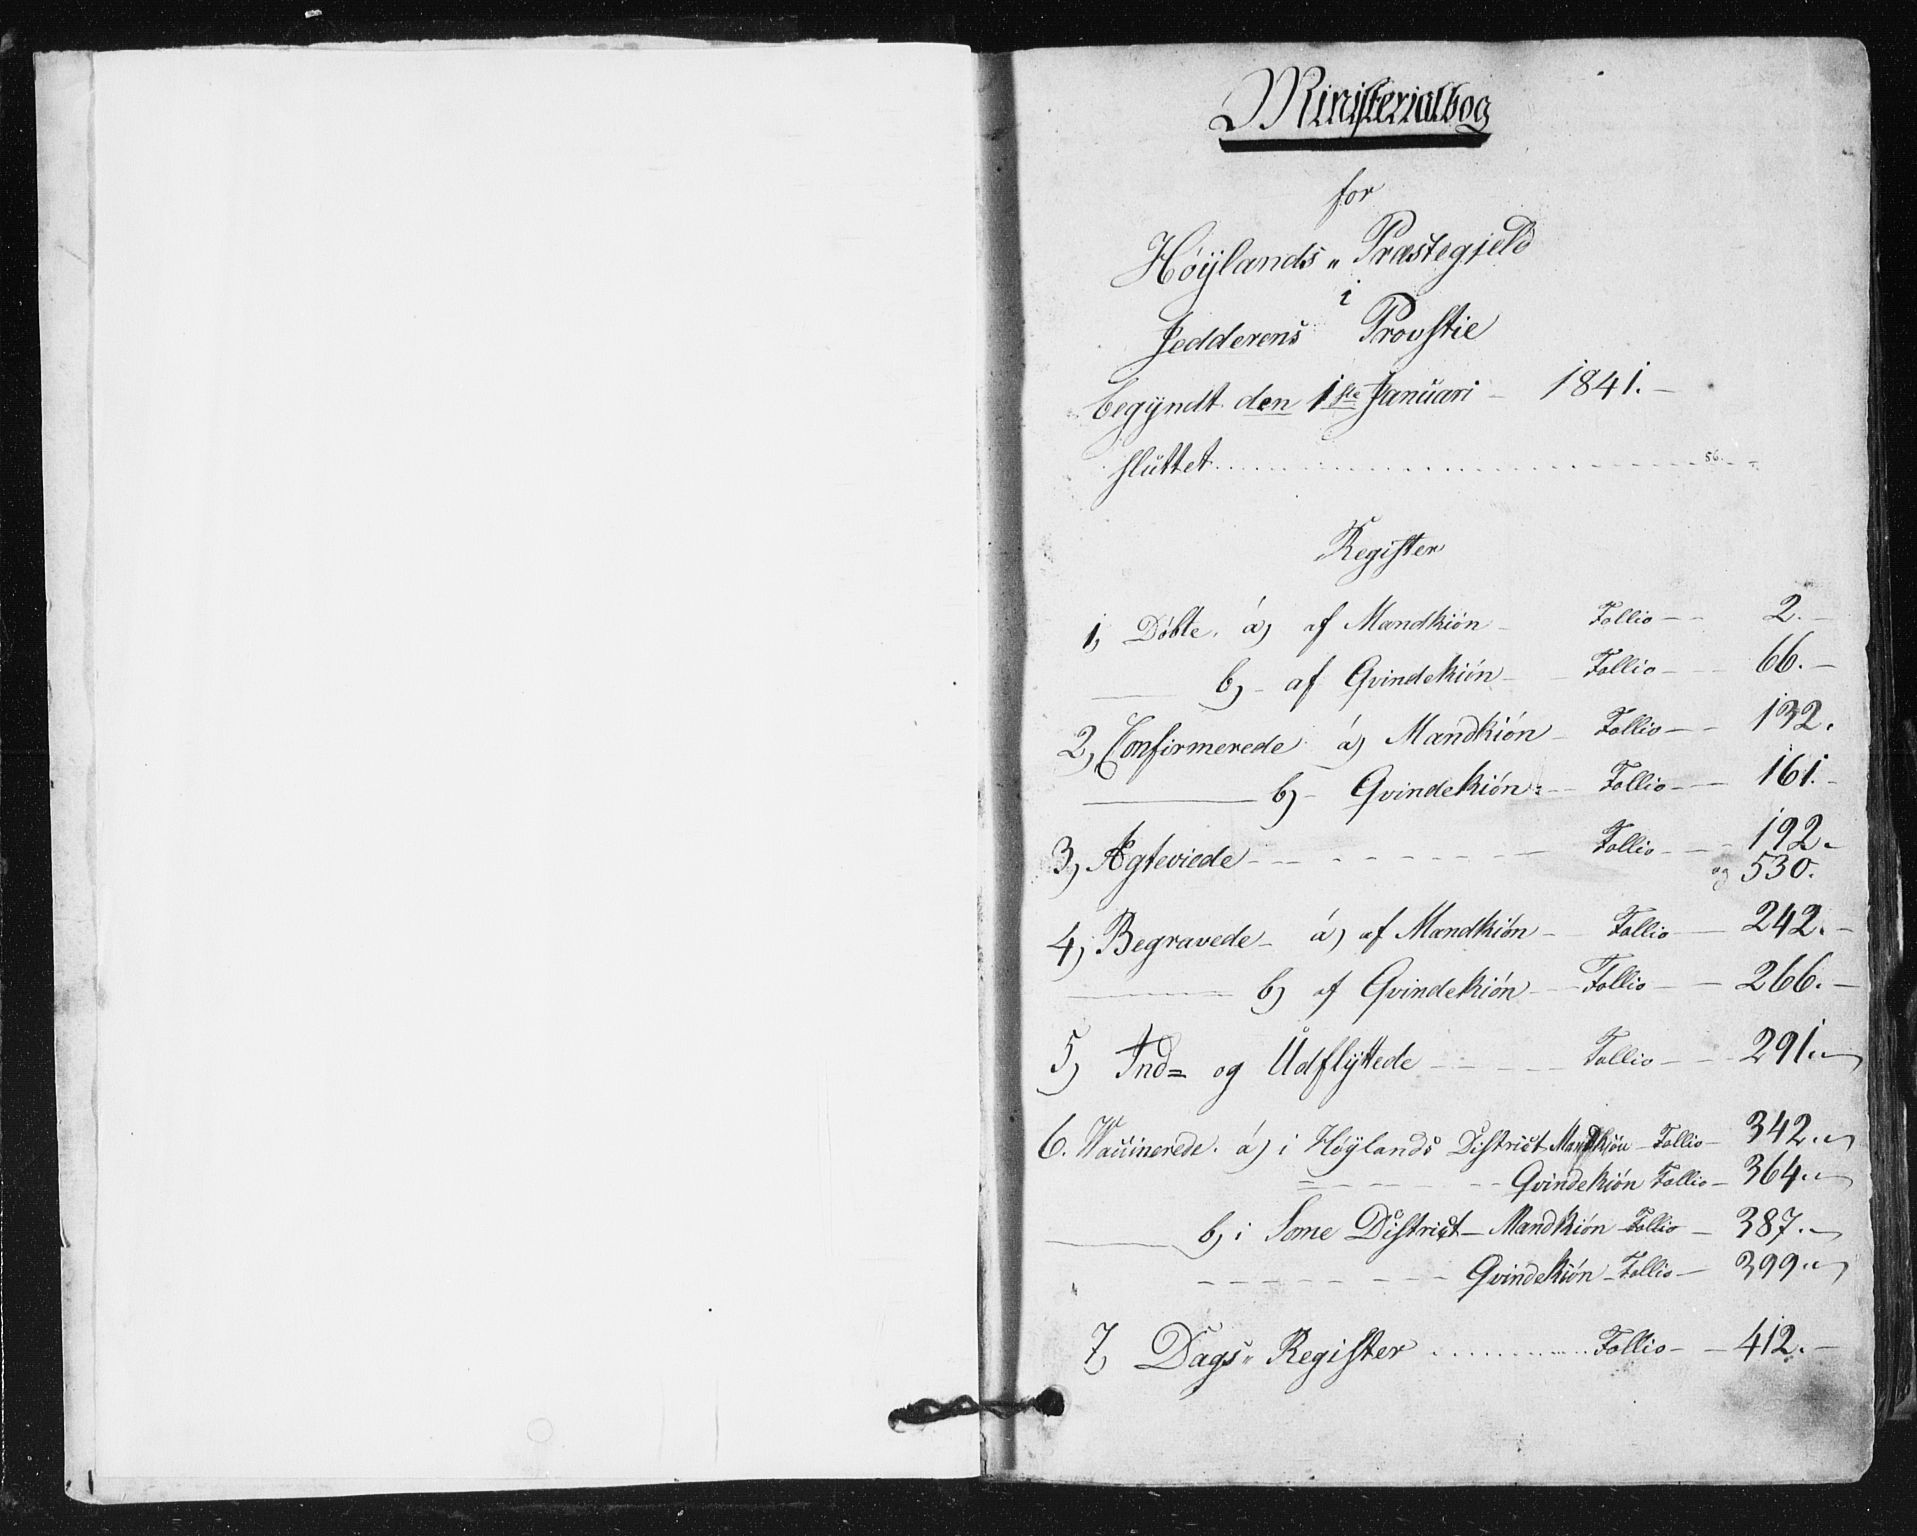 Ministerialbog
for
Høÿlands „ Præstegjeld
i
Jedderens Provstie
begÿndt den 1ste Januari - 1841. -
sluttet 56.
Register
1, Døbte. a) af Mandkiøn - Follio - - 2. -
b) - af Qvindekiøn - Follio - - 66. -
2, Confirmerede a) Mandkiøn - Follio - - 132.
b) - Qvindekiøn - Follio - - 161. -
3) Ægteviede - - - - - Follio - - 192.
og 530.
4) Begravede - a) af Mandkiøn - Follio - 242. -
b) af Qvindekiøn - Follio - - 266. -
5) Ind= og Udflÿttede - - - Follio - - 291.
6. Vaccinerede. a) i Høÿlands District Mandkiøn - Follio - 342.
= - - - - Qvindekiøn Follio - 364.
b) i Some District - Mandkiøn - Follio - 387.
- - - - - Qvindekiøn - Follio - 399.
7, Dags „ Register ........ Follio - - 412. -